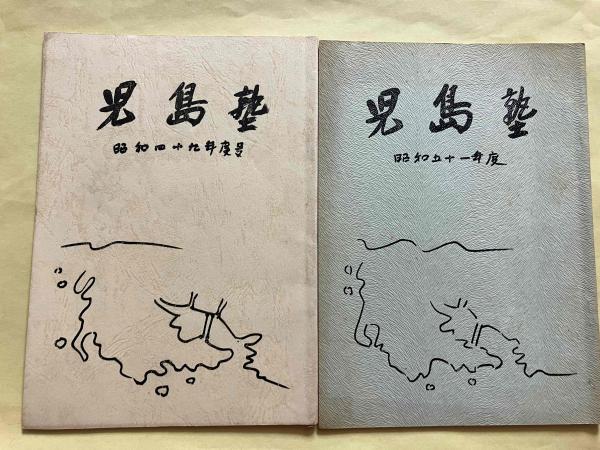 児島塾
昭和四十九年度号
児島塾
昭和五十一年度